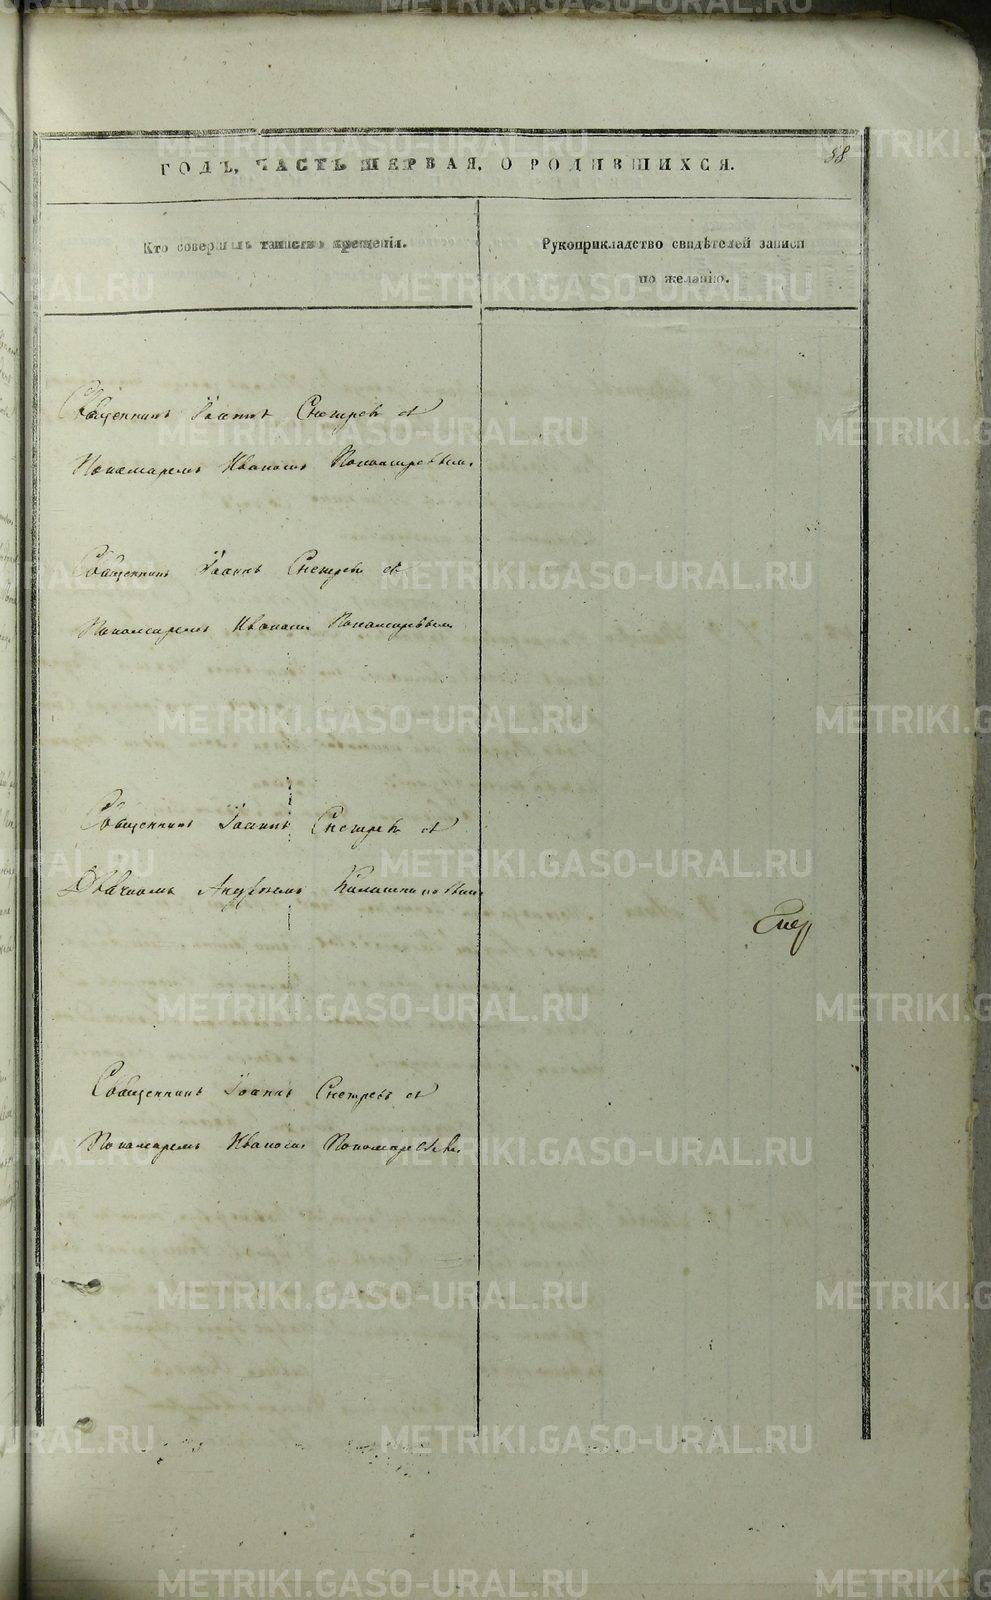 ГОДЪ, ЧАСТЬ ПЕРВАЯ, О РОДИВШИХСЯ.
Кто совершалъ таинство крещенія.
Рукоприкладство свидѣтелей записи
по желанію.
Священникъ Іоаннъ съ
Пономаремъ Иваномъ Пономаревымъ
Священникъ Іоаннъ съ
Пономаремъ Иваномъ Пономаревымъ
Священникъ Іоаннъ съ
Дьячкомъ Андреемъ Калашниковымъ
Священникъ Іоаннъ съ
Пономаремъ Иваномъ Пономаревымъ
METRIKI.GASO-URAL.RU